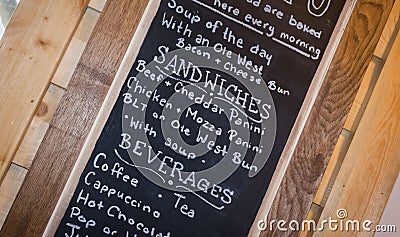 and are baked
here every morning
Soup of the day
With an Ole West
Bacon + Cheese Bun
SANDWICHES
Beef + Cheddar Panini
Chicken + Mozza Panini
BLT on Ole West Bun
- With Soup -
BEVERAGES
Coffee · Tea
Cappuccino
Hot Chocolate
Pop or